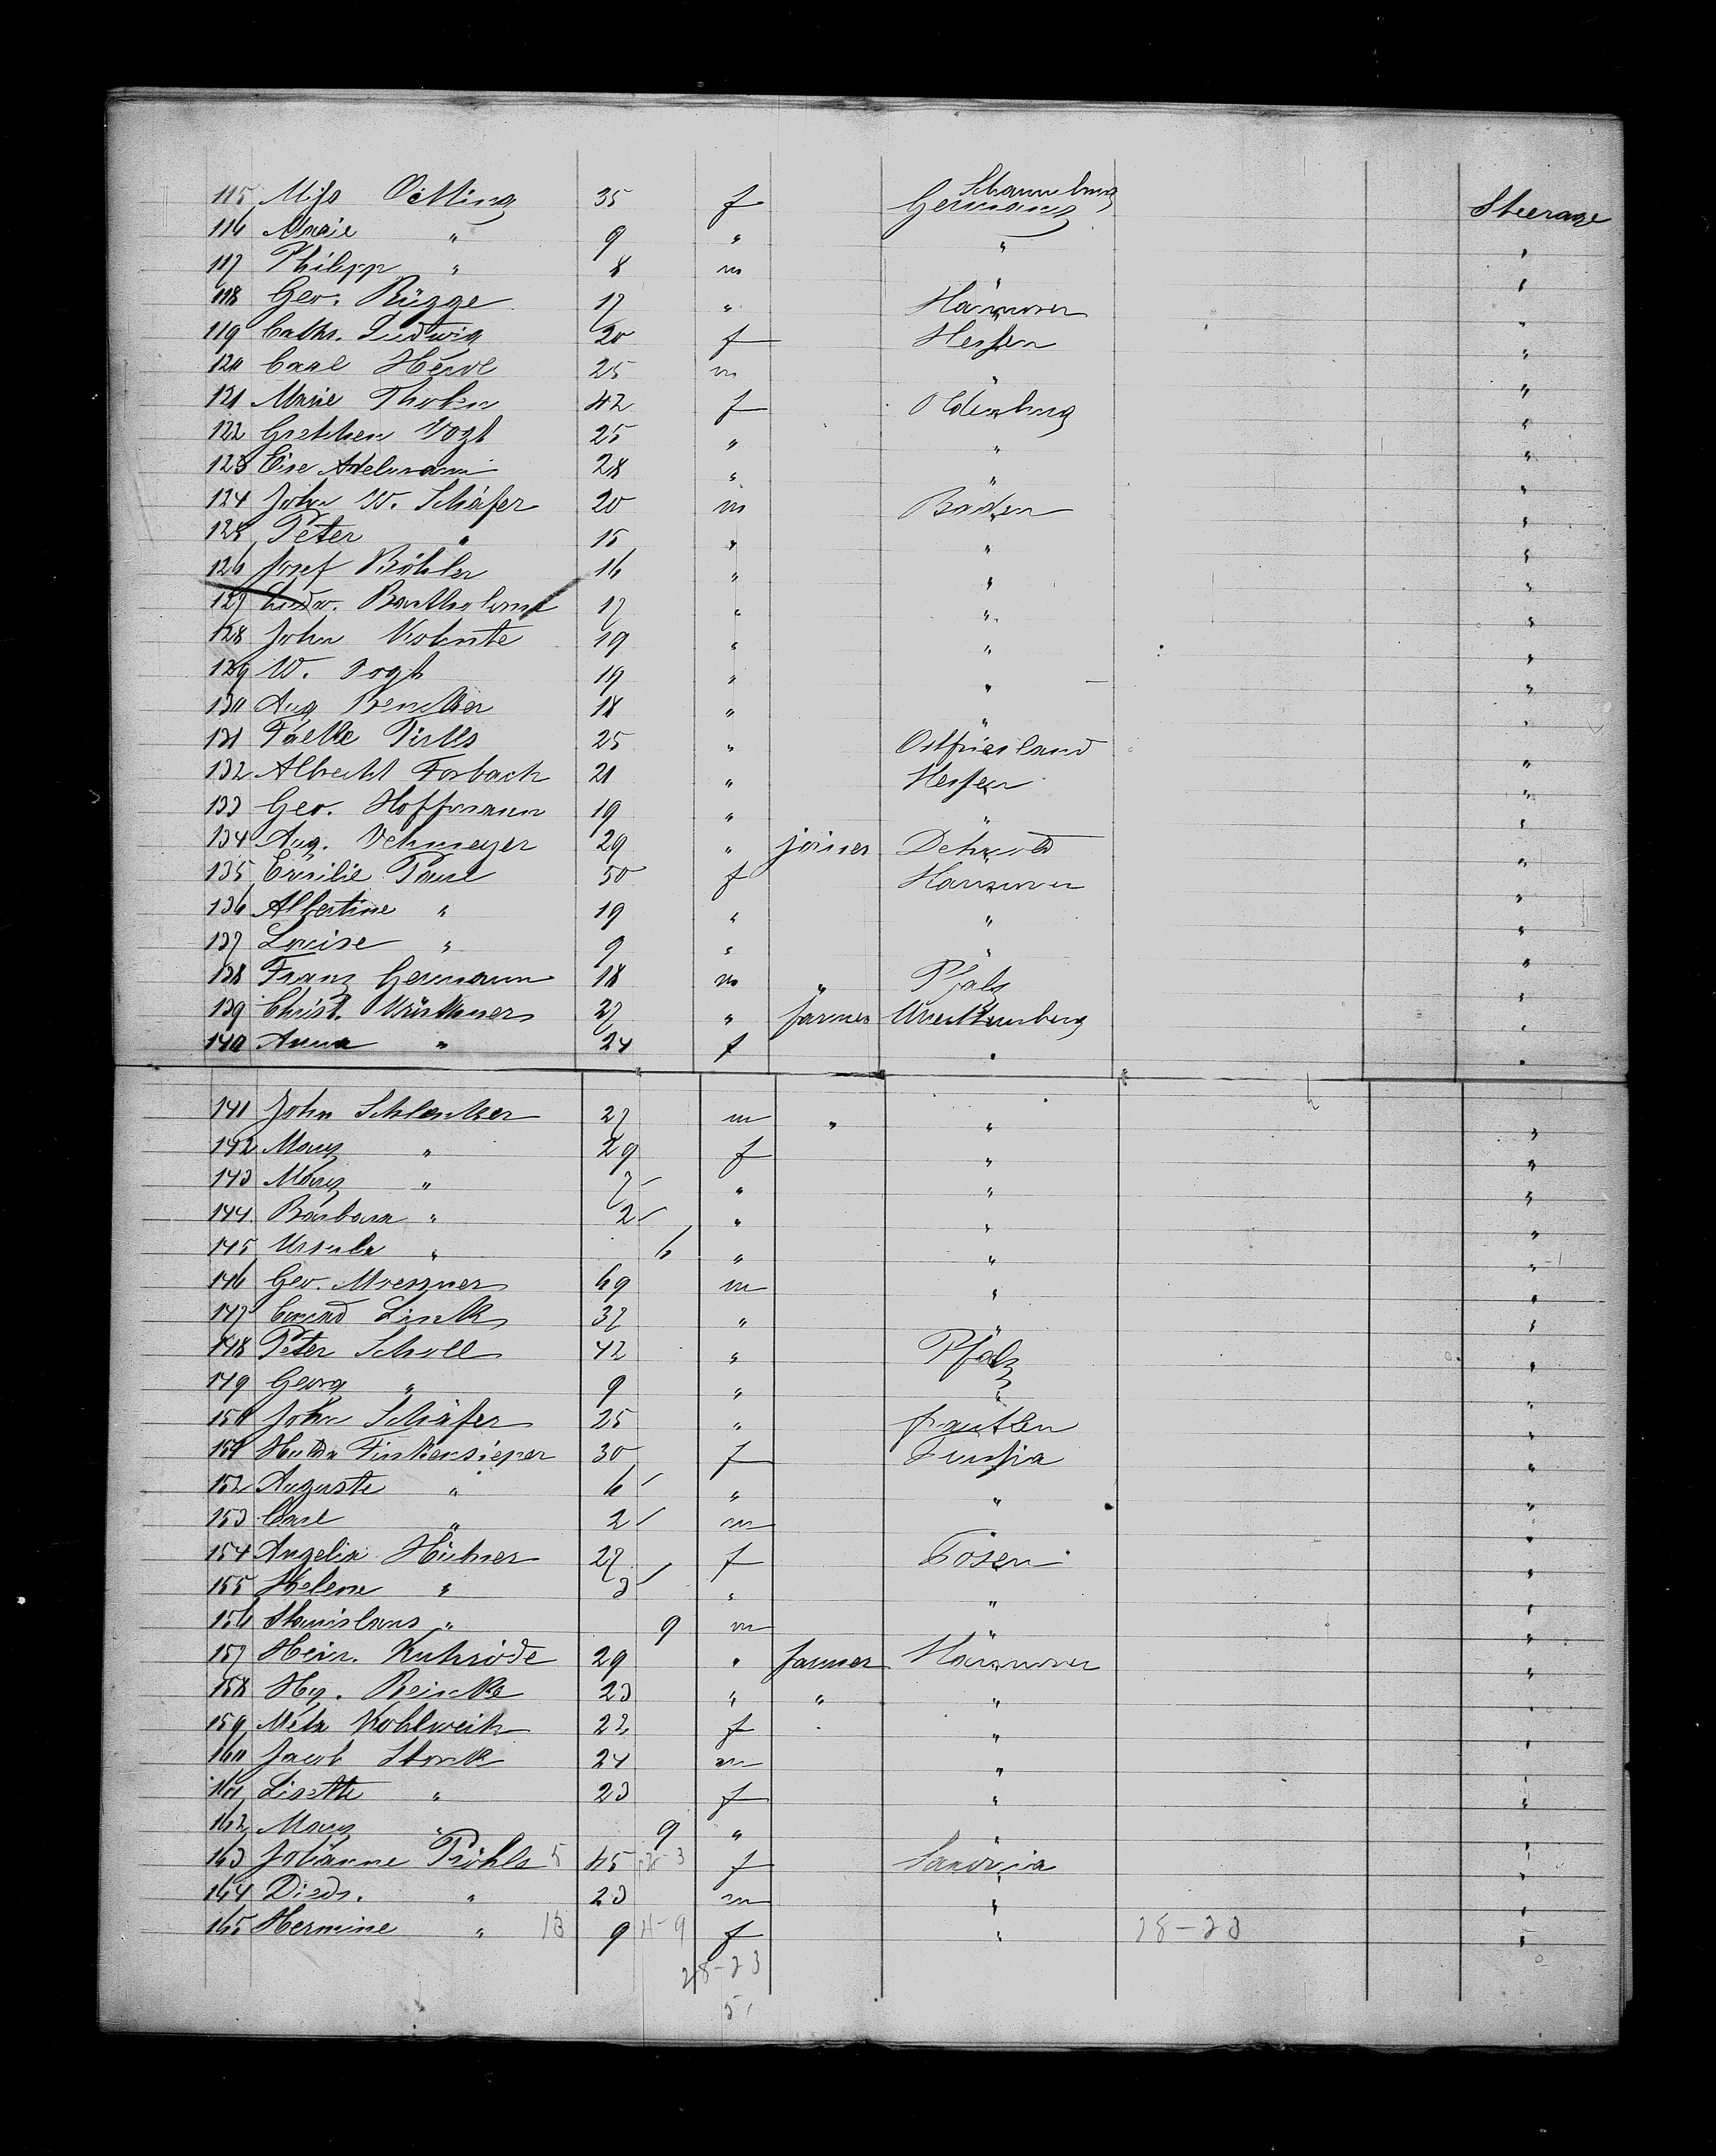 Schaumburg
115 Miss Oetting 35 f Germany Steerage
116 Marie " 9 " " "
117 Philipp " 8 m " "
118 Geo. Rügge 17 " Hannover "
119 Cathr. Ludwig 20 f Hessen "
120 Carl 25 m " "
121 Marie Tholen 42 f Oldenburg "
122 Gretchen Vogt 25 " " "
123 Elise Adelmann 28 " " "
124 John W. Schäfer 20 m Baden "
125 Peter " 15 " " "
126 Josef Böhler 16 " " "
127 Ludw. Bartholome 17 " " "
128 John Kohnte 19 " " "
129 W. Vogt 19 " " "
130 Aug. 18 " " "
131 25 " Ostfriesland "
132 Albrecht Forbach 21 " Hessen "
133 Geo. Hoffmann 19 " " "
134 Aug. Vehmeyer 29 " joiner Detmold "
135 Emilie Paul 50 f Hannover "
136 Albertine " 19 " " "
137 Louise " 9 " " "
138 Franz Germann 18 m " Pfalz "
139 Christ. 27 " farmer Wurttemberg "
140 Anna " 24 f " "
141 John Schlenker 27 m " " "
142 Mary " 29 f " "
143 Mary " 7 " " "
144 Barbara " 2 " " "
145 Ursula " 6 " " "
146 Geo. Messner 69 m " "
147 Conrad Link 37 " " "
148 Peter Scholl 42 " Pfalz "
149 Georg " 9 " " "
150 John Schäfer 25 " "
151 Finkensieper 30 f Prussia "
152 Auguste " 6 " " "
153 Carl " 2 m " "
154 Angelia Hübner 27 f Posen "
155 Helene " 3 " " "
156 Stanislaus " 9 m " "
157 Heinr. Kuhrode 29 " farmer Hannover "
158 Hy. Reincke 23 " " " "
159 Meta Kohlweih 22 f " "
160 Jacob Stork 24 m " "
161 Lisette " 23 f " "
162 Mary " 9 " " "
163 Johanne Pröhls 5 45 f Saxonia "
164 Diedr. " 23 m " "
165 Hermine " 13 9 4-9 f " 28-23 "
28-23
51